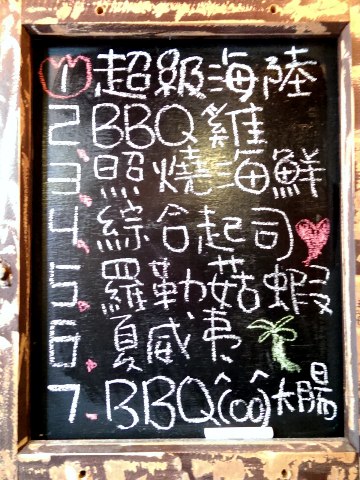 1 超級海陸
2 BBQ雞
3、照燒海鮮
4、綜合起司
5、羅勒菇蝦
6、夏威夷
7、BBQ(^oo^)大腸